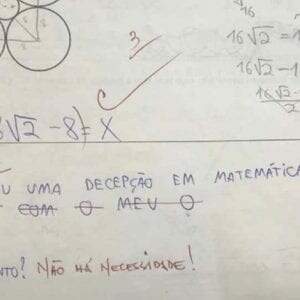 16
16√2 =
3
16√2 - 1
16√2 -
2
C
8√2 - 8 = X
U UMA DECEPÇÃO EM MATEMÁTICA
COM O MEU O
NTO? NÃO HÁ NECESSIDADE!